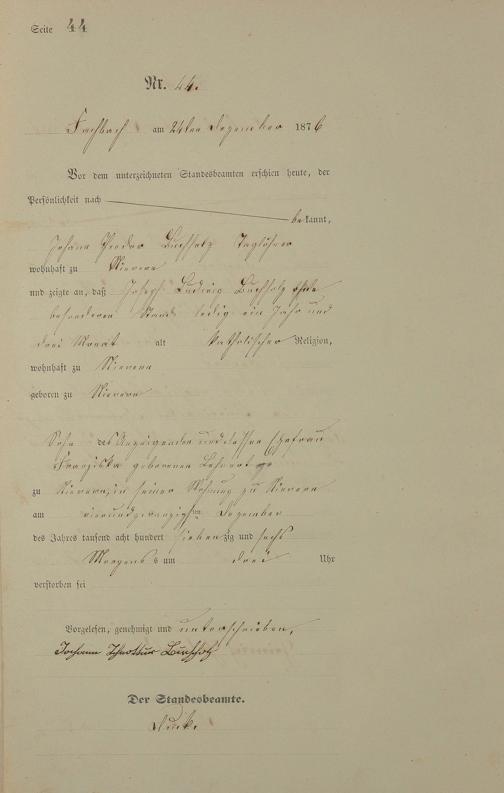 Seite 44
Nr. 44.
Fachbach am 24ten Dezember 1876
Vor dem unterzeichneten Standesbeamten erschien heute, der
Persönlichkeit nach
bekannt,
Johann Theodor Buchholz Taglöhner
wohnhaft zu Nievern
und zeigte an, daß Joseph Ludwig Buchholz ohne
besonderen Stand, ledig ein Jahr und
drei Monat alt katholischer Religion,
wohnhaft zu Nievern
geboren zu Nievern
Sohn des Anzeigenden und dessen Ehefrau
Franziska geborenen
zu Nievern, in seiner Wohnung zu Nievern
am vierundzwanzigsten Dezember
des Jahres tausend acht hundert siebenzig und sechs
Morgens um drei Uhr
verstorben sei
Vorgelesen, genehmigt und unterschrieben,
Johann Buchholz
Der Standesbeamte.